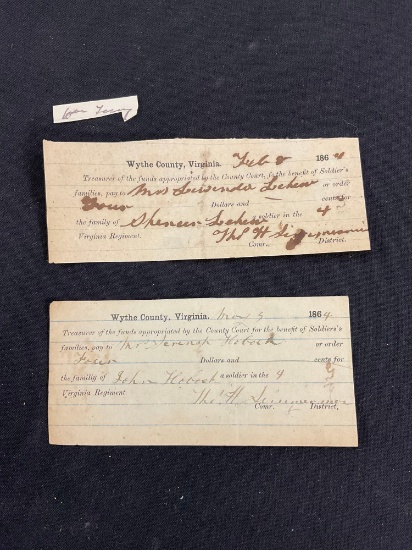 Wythe County, Virginia. Feb 8 1864
Treasurer of the funds appropriated by the County Court, fo the benefit of Soldier's
families, pay to Mrs or order
Four Dollars and — cents for
the family of Spencer a soldier in the 4
Virginia Regiment. Tho H
Comr. District.
Wythe County, Virginia. Nov 9 1864
Treasurer of the funds appropriated by the County Court for the benefit of Soldier's
families, pay to Mrs Hoback or order
Four Dollars and cents for
the family of John Hoback a soldier in the
Virginia Regiment Tho H
Comr. District,